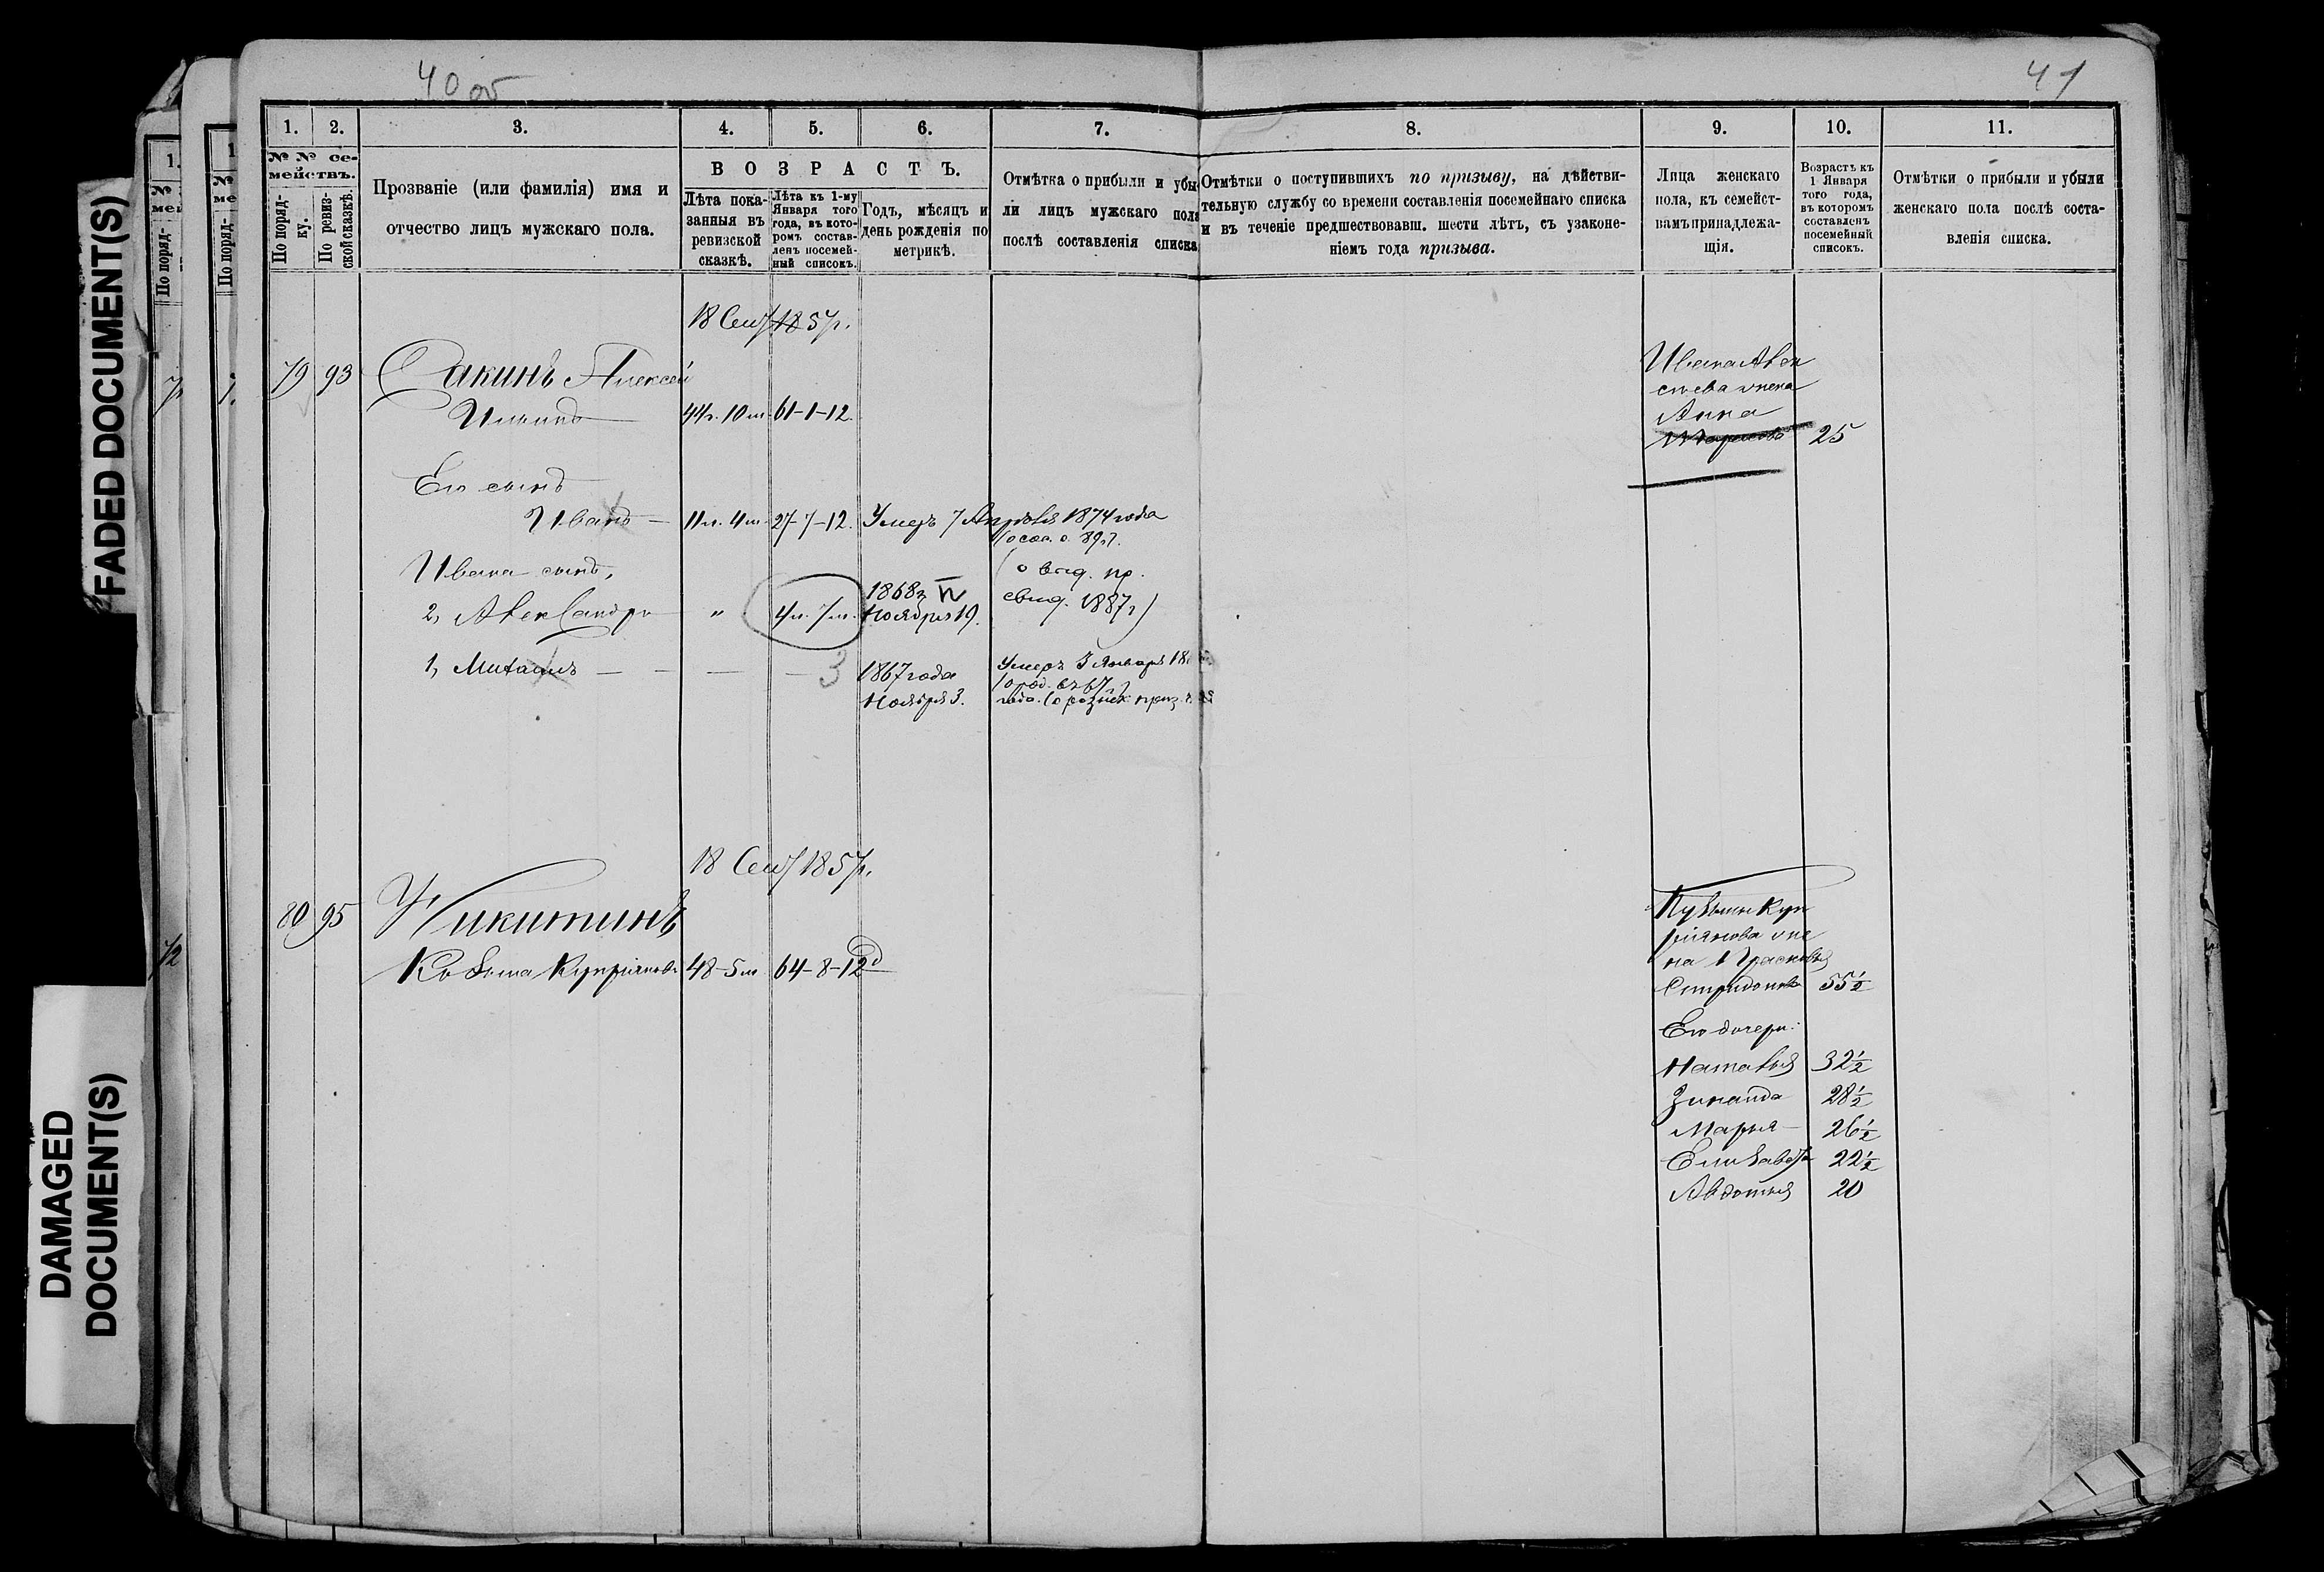 FADED DOCUMENT(S)
DAMAGED
DOCUMENT(S)
40 об
41
1. 2. 3. 4. 5. 6. 7. 8. 9. 10. 11.
№ № се-
мействъ.
По поряд-
ку.
По ревиз-
ской сказкѣ.
Прозваніе (или фамилія) имя и
отчество лицъ мужскаго пола.
ВОЗРАСТЪ.
Лѣта пока-
занныя въ
ревизской
сказкѣ.
Лѣта къ 1-му
Января того
года, въ кото-
ромъ состав-
ленъ посемей-
ный списокъ.
Годъ, мѣсяцъ и
день рожденія по
метрикѣ.
Отмѣтка о прибыли и убы-
ли лицъ мужскаго пола
послѣ составленія списка
Отмѣтки о поступившихъ по призыву, на дѣйстви-
тельную службу со времени составленія посемейнаго списка
и въ теченіе предшествовавш. шести лѣтъ, съ узаконе-
ніемъ года призыва.
Лица женскаго
пола, къ семейст-
вамъ принадлежа-
щія.
Возрастъ къ
1 Января
того года,
въ которомъ
составленъ
посемейный
списокъ.
Отмѣтки о прибыли и убыли
женскаго пола послѣ соста-
вленія списка.
18 Сент 1857г.
79 93 Сакинъ Алексей
Ильинъ 44г. 10м 61-1-12.
Его сынъ
Иванъ 11л. 4м 27-7-12. Умеръ 7 Апрѣля 1874 года
Ивана сынъ,
2, Александръ " 4л. 7м. 1868г Ноября 19.
свид. 1887г)
1, Михаилъ 3 1867 года
Ноября 3.
Умеръ 3 Января 18
Ивана Алек
сѣева жена
Анна
25
18 Сент 1857г.
80 95 Никитинъ
Козьма Купріяновъ 48-5м 64-8-12
Кузьмы Куп
ріянова же
на Прасковья
Спиридонова 55½
Его дочери:
Наталья 32½
Зинаида 28½
Марья 26½
Елизавета 22½
Авдотья 20